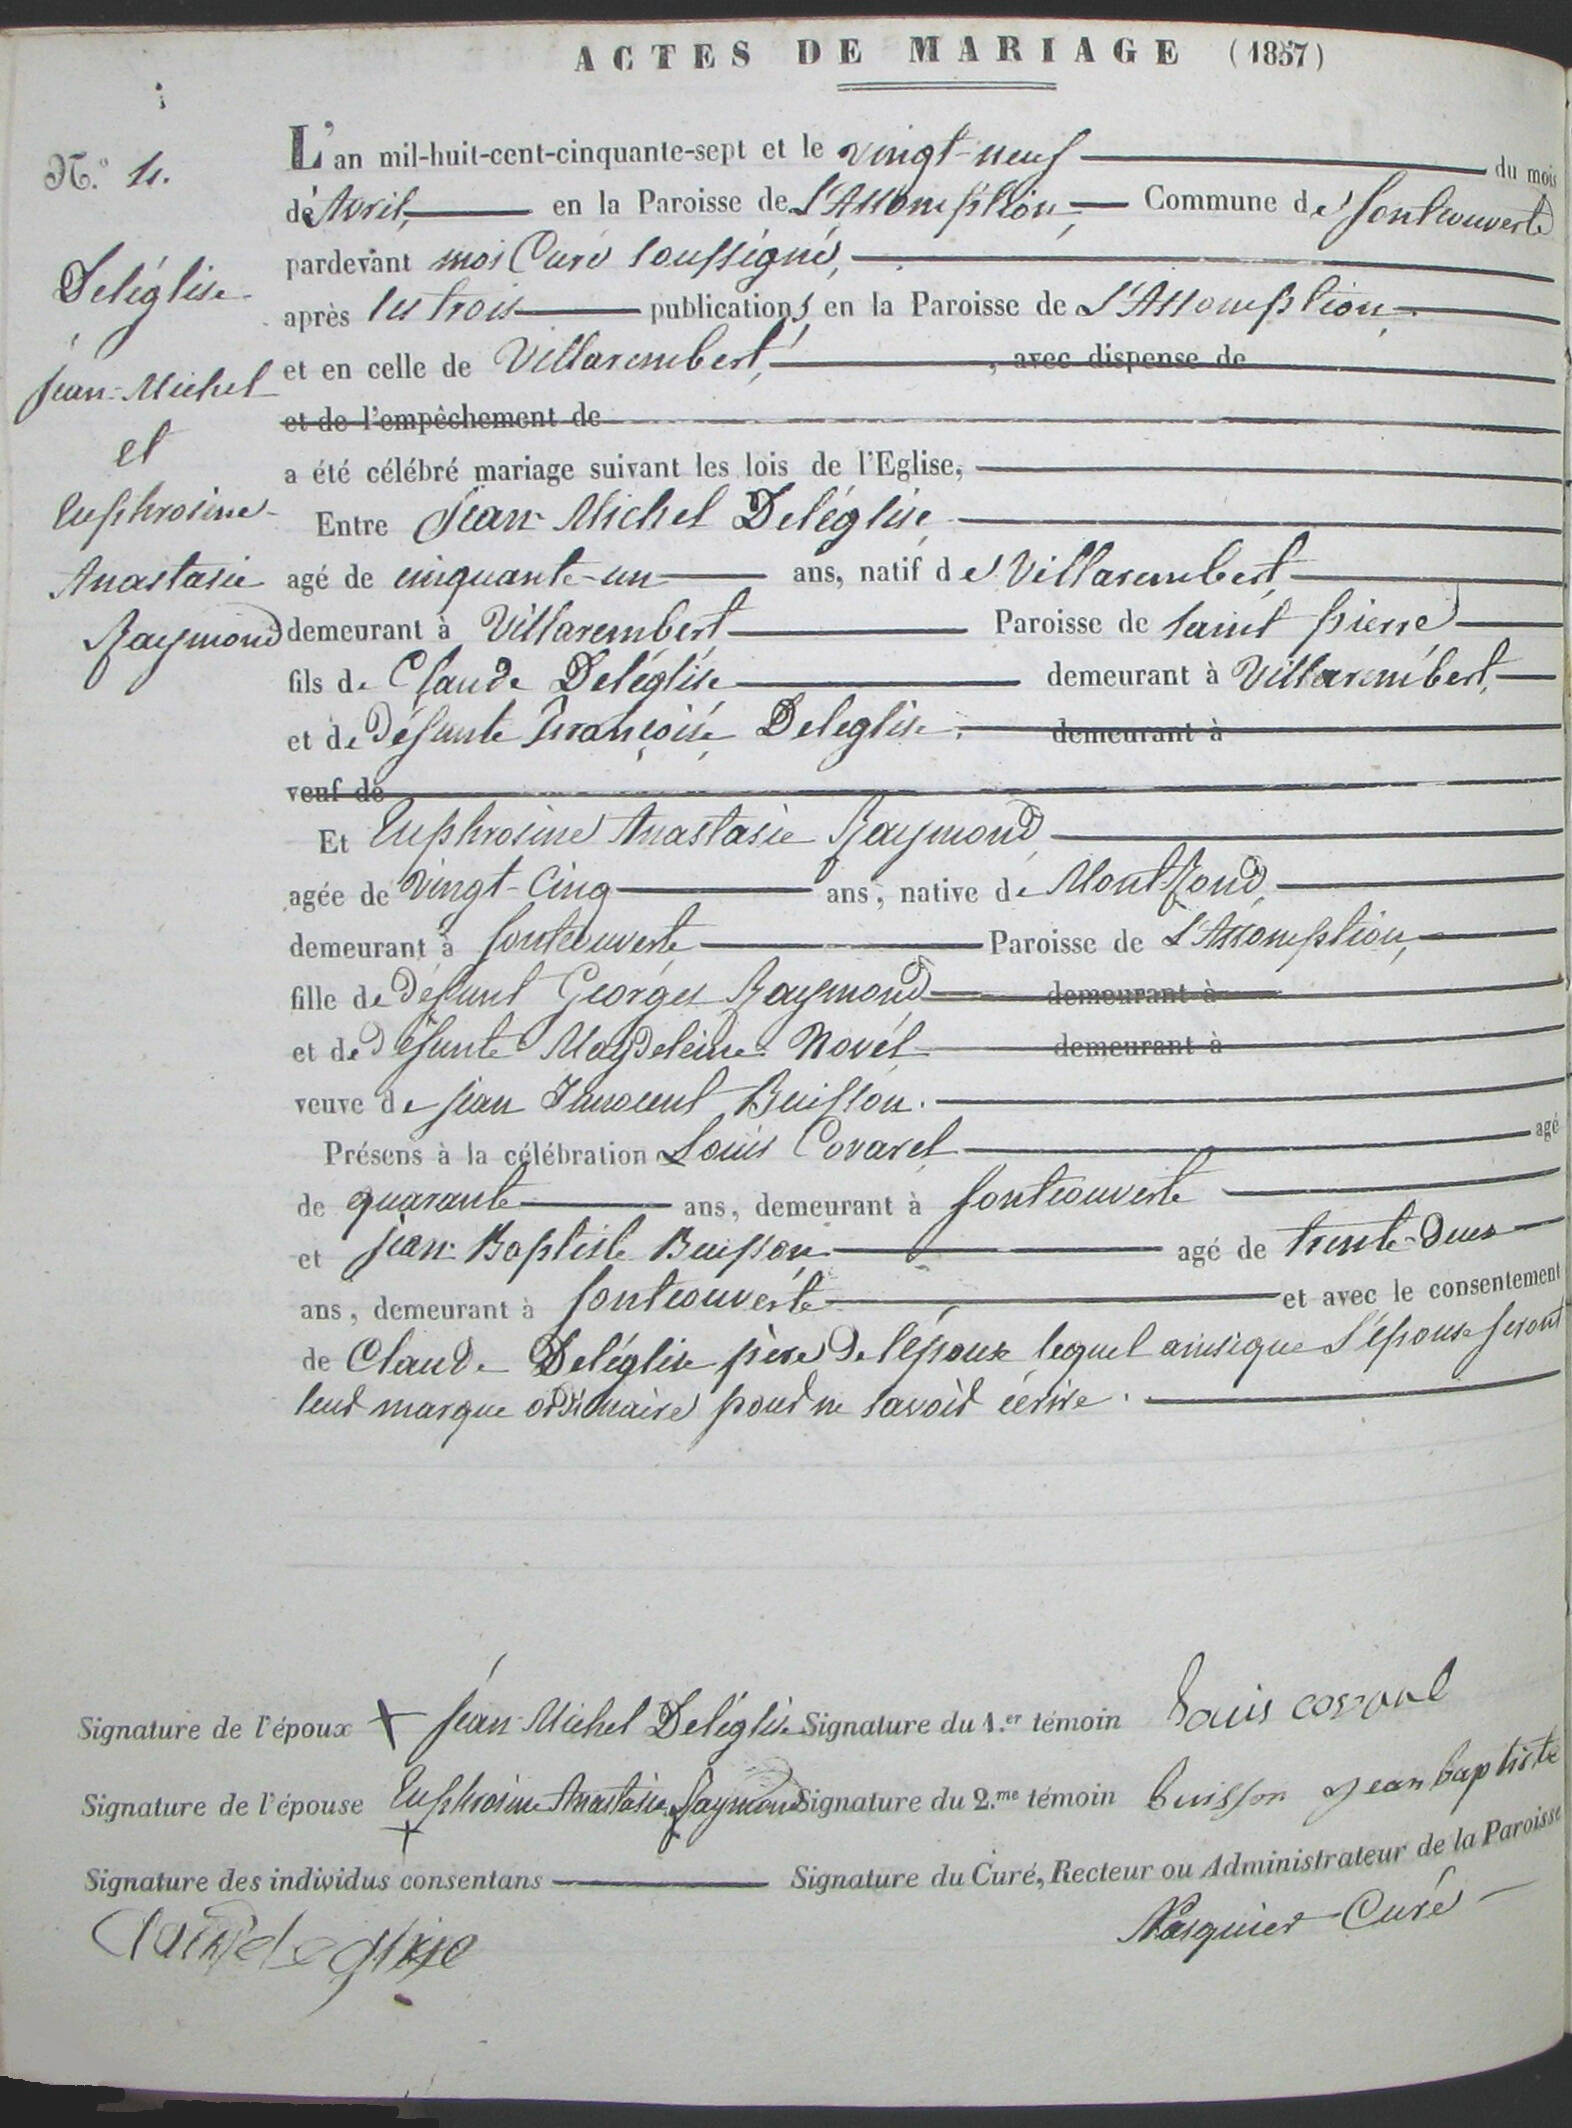 ACTES DE MARIAGE (1857)
N.° 4.
Deléglise
Jean-Michel
et
Euphrosine
Anastasie
Raymond
L'an mil-huit-cent-cinquante-sept et le vingt-neuf du mois
de Avril, en la Paroisse de L'Assomption, Commune de fontcouverte
pardevant moi Curé soussigné,
après les trois publications en la Paroisse de L'Assomption,
et en celle de Villarembert, , avec dispense de
et de l'empêchement de
a été célébré mariage suivant les lois de l'Eglise,
Entre Jean-Michel Deléglise
agé de cinquante-un ans, natif de Villarembert,
demeurant à Villarembert Paroisse de saint pierre
fils de Claude Deléglise demeurant à Villarembert,
et de défunte Françoise Deleglise, demeurant à
veuf de
Et Euphrosine Anastasie Raymond,
agée de vingt-cinq ans, native de Montrond,
demeurant à fontcouverte Paroisse de L'Assomption,
fille de défunt Georges Raymond demeurant à
et de défunte Magdeleine Novél demeurant à
veuve de jean Innocent Buisson.
Présens à la célébration Louis Covarel agé
de quarante ans, demeurant à fontcouverte
et jean-Baptiste Buisson agé de trente-deux
ans, demeurant à fontcouverte et avec le consentement
de Claude Deléglise père de l'époux lequel ainsique L'épouse feront
leur marque ordinaire pour ne savoir écrire.
Signature de l'époux + Jean-Michel Deléglise Signature du 1.er témoin Louis covarel
Signature de l'épouse Euphrosine Anastasie Raymond Signature du 2.me témoin buisson jean baptiste
+
Signature des individus consentans Signature du Curé, Recteur ou Administrateur de la Paroisse
Pasquier Curé